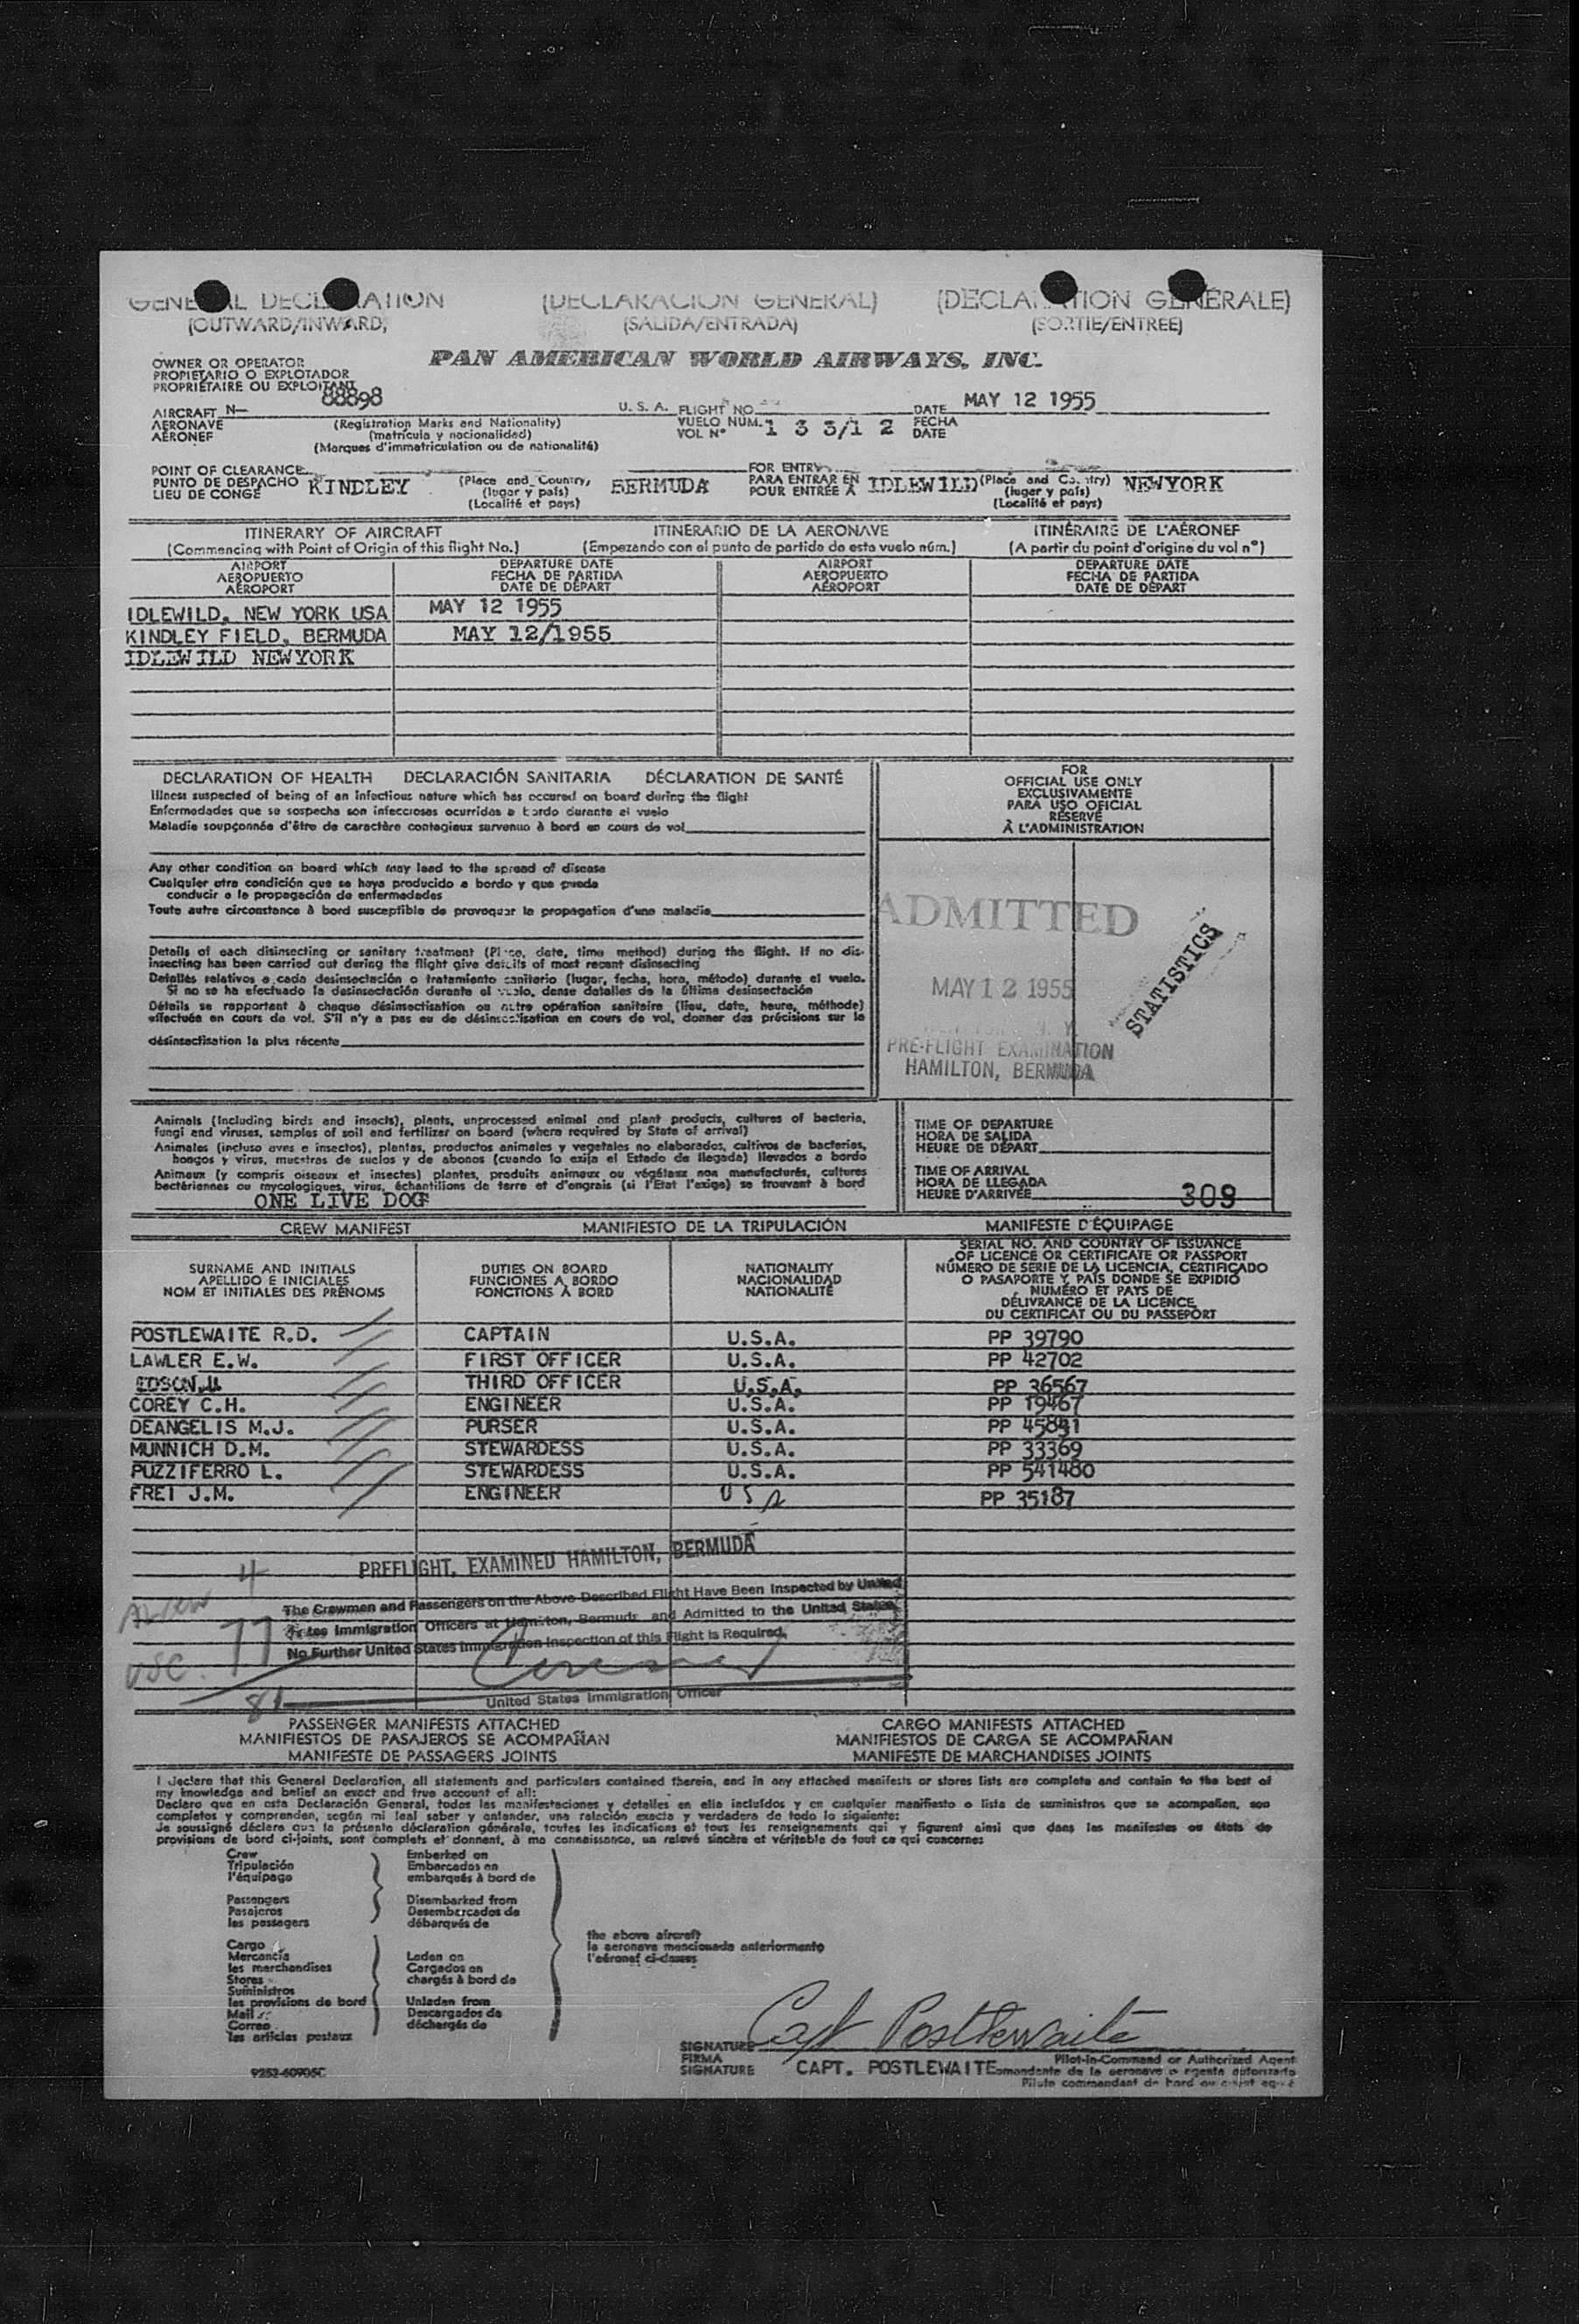 GENERAL DECLARATION (DECLARACION GENERAL) (DECLARATION GÉNÉRALE)
(OUTWARD/INWARD) (SALIDA/ENTRADA) (SORTIE/ENTREE)
OWNER OR OPERATOR
PROPIETARIO O EXPLOTADOR
PROPRIÉTAIRE OU EXPLOITANT
PAN AMERICAN WORLD AIRWAYS, INC.
AIRCRAFT N— 88898 U. S. A. FLIGHT NO. DATE MAY 12 1955
AERONAVE (Registration Marks and Nationality) VUELO NUM. 1 3 3/1 2 FECHA
AÉRONEF (matrícula y nacionalidad) VOL N° DATE
(Marques d'immatriculation ou de nationalité)
POINT OF CLEARANCE FOR ENTRY
PUNTO DE DESPACHO KINDLEY (Place and Country, BERMUDA PARA ENTRAR EN IDLEWILD (Place and Country) NEWYORK
LIEU DE CONGÉ (lugar y país) POUR ENTRÉE A (lugar y país)
(Localité et pays) (Localité et pays)
ITINERARY OF AIRCRAFT ITINERARIO DE LA AERONAVE ITINÉRAIRE DE L'AÉRONEF
(Commencing with Point of Origin of this flight No.) (Empezando con el punto de partida de este vuelo núm.) (A partir du point d'origine du vol n°)
AIRPORT DEPARTURE DATE AIRPORT DEPARTURE DATE
AEROPUERTO FECHA DE PARTIDA AEROPUERTO FECHA DE PARTIDA
AÉROPORT DATE DE DÉPART AÉROPORT DATE DE DÉPART
IDLEWILD, NEW YORK USA MAY 12 1955
KINDLEY FIELD, BERMUDA MAY 12/1955
IDLEWILD NEWYORK
DECLARATION OF HEALTH DECLARACIÓN SANITARIA DÉCLARATION DE SANTÉ
Illness suspected of being of an infectious nature which has occured on board during the flight
Enfermedades que se sospecha son infecciosas ocurridas a bordo durante el vuelo
Maladie soupçonnée d'être de caractère contagieux survenue à bord en cours de vol
Any other condition on board which may lead to the spread of disease
Cualquier otra condición que se haya producido a bordo y que pueda
conducir a la propagación de enfermedades
Toute autre circonstance à bord susceptible de provoquer la propagation d'une maladie
Details of each disinsecting or sanitary treatment (Place, date, time method) during the flight. If no dis-
insecting has been carried out during the flight give details of most recent disinsecting
Detalles relativos a cada desinsectación o tratamiento sanitario (lugar, fecha, hora, método) durante el vuelo.
Si no se ha efectuado la desinsectación durante el vuelo, dense detalles de la última desinsectación
Détails se rapportant à chaque désinsectisation ou autre opération sanitaire (lieu, date, heure, méthode)
effectuée en cours de vol. S'il n'y a pas eu de désinsectisation en cours de vol, donner des précisions sur la
désinsectisation la plus récente
FOR
OFFICIAL USE ONLY
EXCLUSIVAMENTE
PARA USO OFICIAL
RESERVÉ
À L'ADMINISTRATION
ADMITTED
MAY 12 1955
PRE-FLIGHT EXAMINATION
HAMILTON, BERMUDA
STATISTICS
Animals (Including birds and insects), plants, unprocessed animal and plant products, cultures of bacteria,
fungi and viruses, samples of soil and fertilizer on board (where required by State of arrival)
Animales (incluso aves e insectos), plantas, productos animales y vegetales no elaborados, cultivos de bacterias,
hongos y virus, muestras de suelos y de abonos (cuando lo exija el Estado de llegada) llevados a bordo
Animaux (y compris oiseaux et insectes) plantes, produits animaux ou végétaux non manufacturés, cultures
bactériennes ou mycologiques, virus, échantillons de terre et d'engrais (si l'Etat l'exige) se trouvant à bord
ONE LIVE DOG
TIME OF DEPARTURE
HORA DE SALIDA
HEURE DE DÉPART
TIME OF ARRIVAL
HORA DE LLEGADA
HEURE D'ARRIVÉE 309
CREW MANIFEST MANIFIESTO DE LA TRIPULACIÓN MANIFESTE D'ÉQUIPAGE
SURNAME AND INITIALS
APELLIDO E INICIALES
NOM ET INITIALES DES PRÉNOMS
DUTIES ON BOARD
FUNCIONES A BORDO
FONCTIONS À BORD
NATIONALITY
NACIONALIDAD
NATIONALITÉ
SERIAL NO. AND COUNTRY OF ISSUANCE
OF LICENCE OR CERTIFICATE OR PASSPORT
NÚMERO DE SERIE DE LA LICENCIA, CERTIFICADO
O PASAPORTE Y PAÍS DONDE SE EXPIDIÓ
NUMÉRO ET PAYS DE
DÉLIVRANCE DE LA LICENCE
DU CERTIFICAT OU DU PASSEPORT
POSTLEWAITE R.D. CAPTAIN U.S.A. PP 39790
LAWLER E.W. FIRST OFFICER U.S.A. PP 42702
EDSON THIRD OFFICER U.S.A. PP 36567
COREY C.H. ENGINEER U.S.A. PP 19467
DEANGELIS M.J. PURSER U.S.A. PP 45841
MUNNICH D.M. STEWARDESS U.S.A. PP 33369
PUZZIFERRO L. STEWARDESS U.S.A. PP 541480
FREI J.M. ENGINEER USA PP 35187
PREFLIGHT, EXAMINED HAMILTON, BERMUDA
Alien 4
The Crewmen and Passengers on the Above Described Flight Have Been Inspected by United
States Immigration Officers at Hamilton, Bermuda and Admitted to the United States.
No Further United States Immigration Inspection of this Flight is Required.
USC. 77
81
United States Immigration Officer
PASSENGER MANIFESTS ATTACHED CARGO MANIFESTS ATTACHED
MANIFIESTOS DE PASAJEROS SE ACOMPAÑAN MANIFIESTOS DE CARGA SE ACOMPAÑAN
MANIFESTE DE PASSAGERS JOINTS MANIFESTE DE MARCHANDISES JOINTS
I declare that this General Declaration, all statements and particulars contained therein, and in any attached manifests or stores lists are complete and contain to the best of
my knowledge and belief an exact and true account of all:
Declaro que en esta Declaración General, todas las manifestaciones y detalles en ella incluídos y en cualquier manifiesto o lista de suministros que se acompañen, son
completos y comprenden, según mi leal saber y entender, una relación exacta y verdadera de todo lo siguiente:
Je soussigné déclare que la présente déclaration générale, toutes les indications et tous les renseignements qui y figurent ainsi que dans les manifestes ou états de
provisions de bord ci-joints, sont complets et donnent, à ma connaissance, un relevé sincère et véritable de tout ce qui concerne:
Crew Embarked on
Tripulación Embarcados en
l'équipage embarqués à bord de
Passengers Disembarked from
Pasajeros Desembarcados de
les passagers débarqués de
the above aircraft
la aeronave mencionada anteriormente
l'aéronef ci-dessus
Cargo
Mercancía Laden on
les marchandises Cargados en
Stores chargés à bord de
Suministros
les provisions de bord Unladen from
Mail Descargados de
Correo déchargés de
les articles postaux
SIGNATURE Capt Postlewaite
FIRMA Pilot-in-Command or Authorized Agent
SIGNATURE CAPT. POSTLEWAITE omandante de la aeronave o agente autorizado
Pilote commandant de bord ou agent
9252-60905C